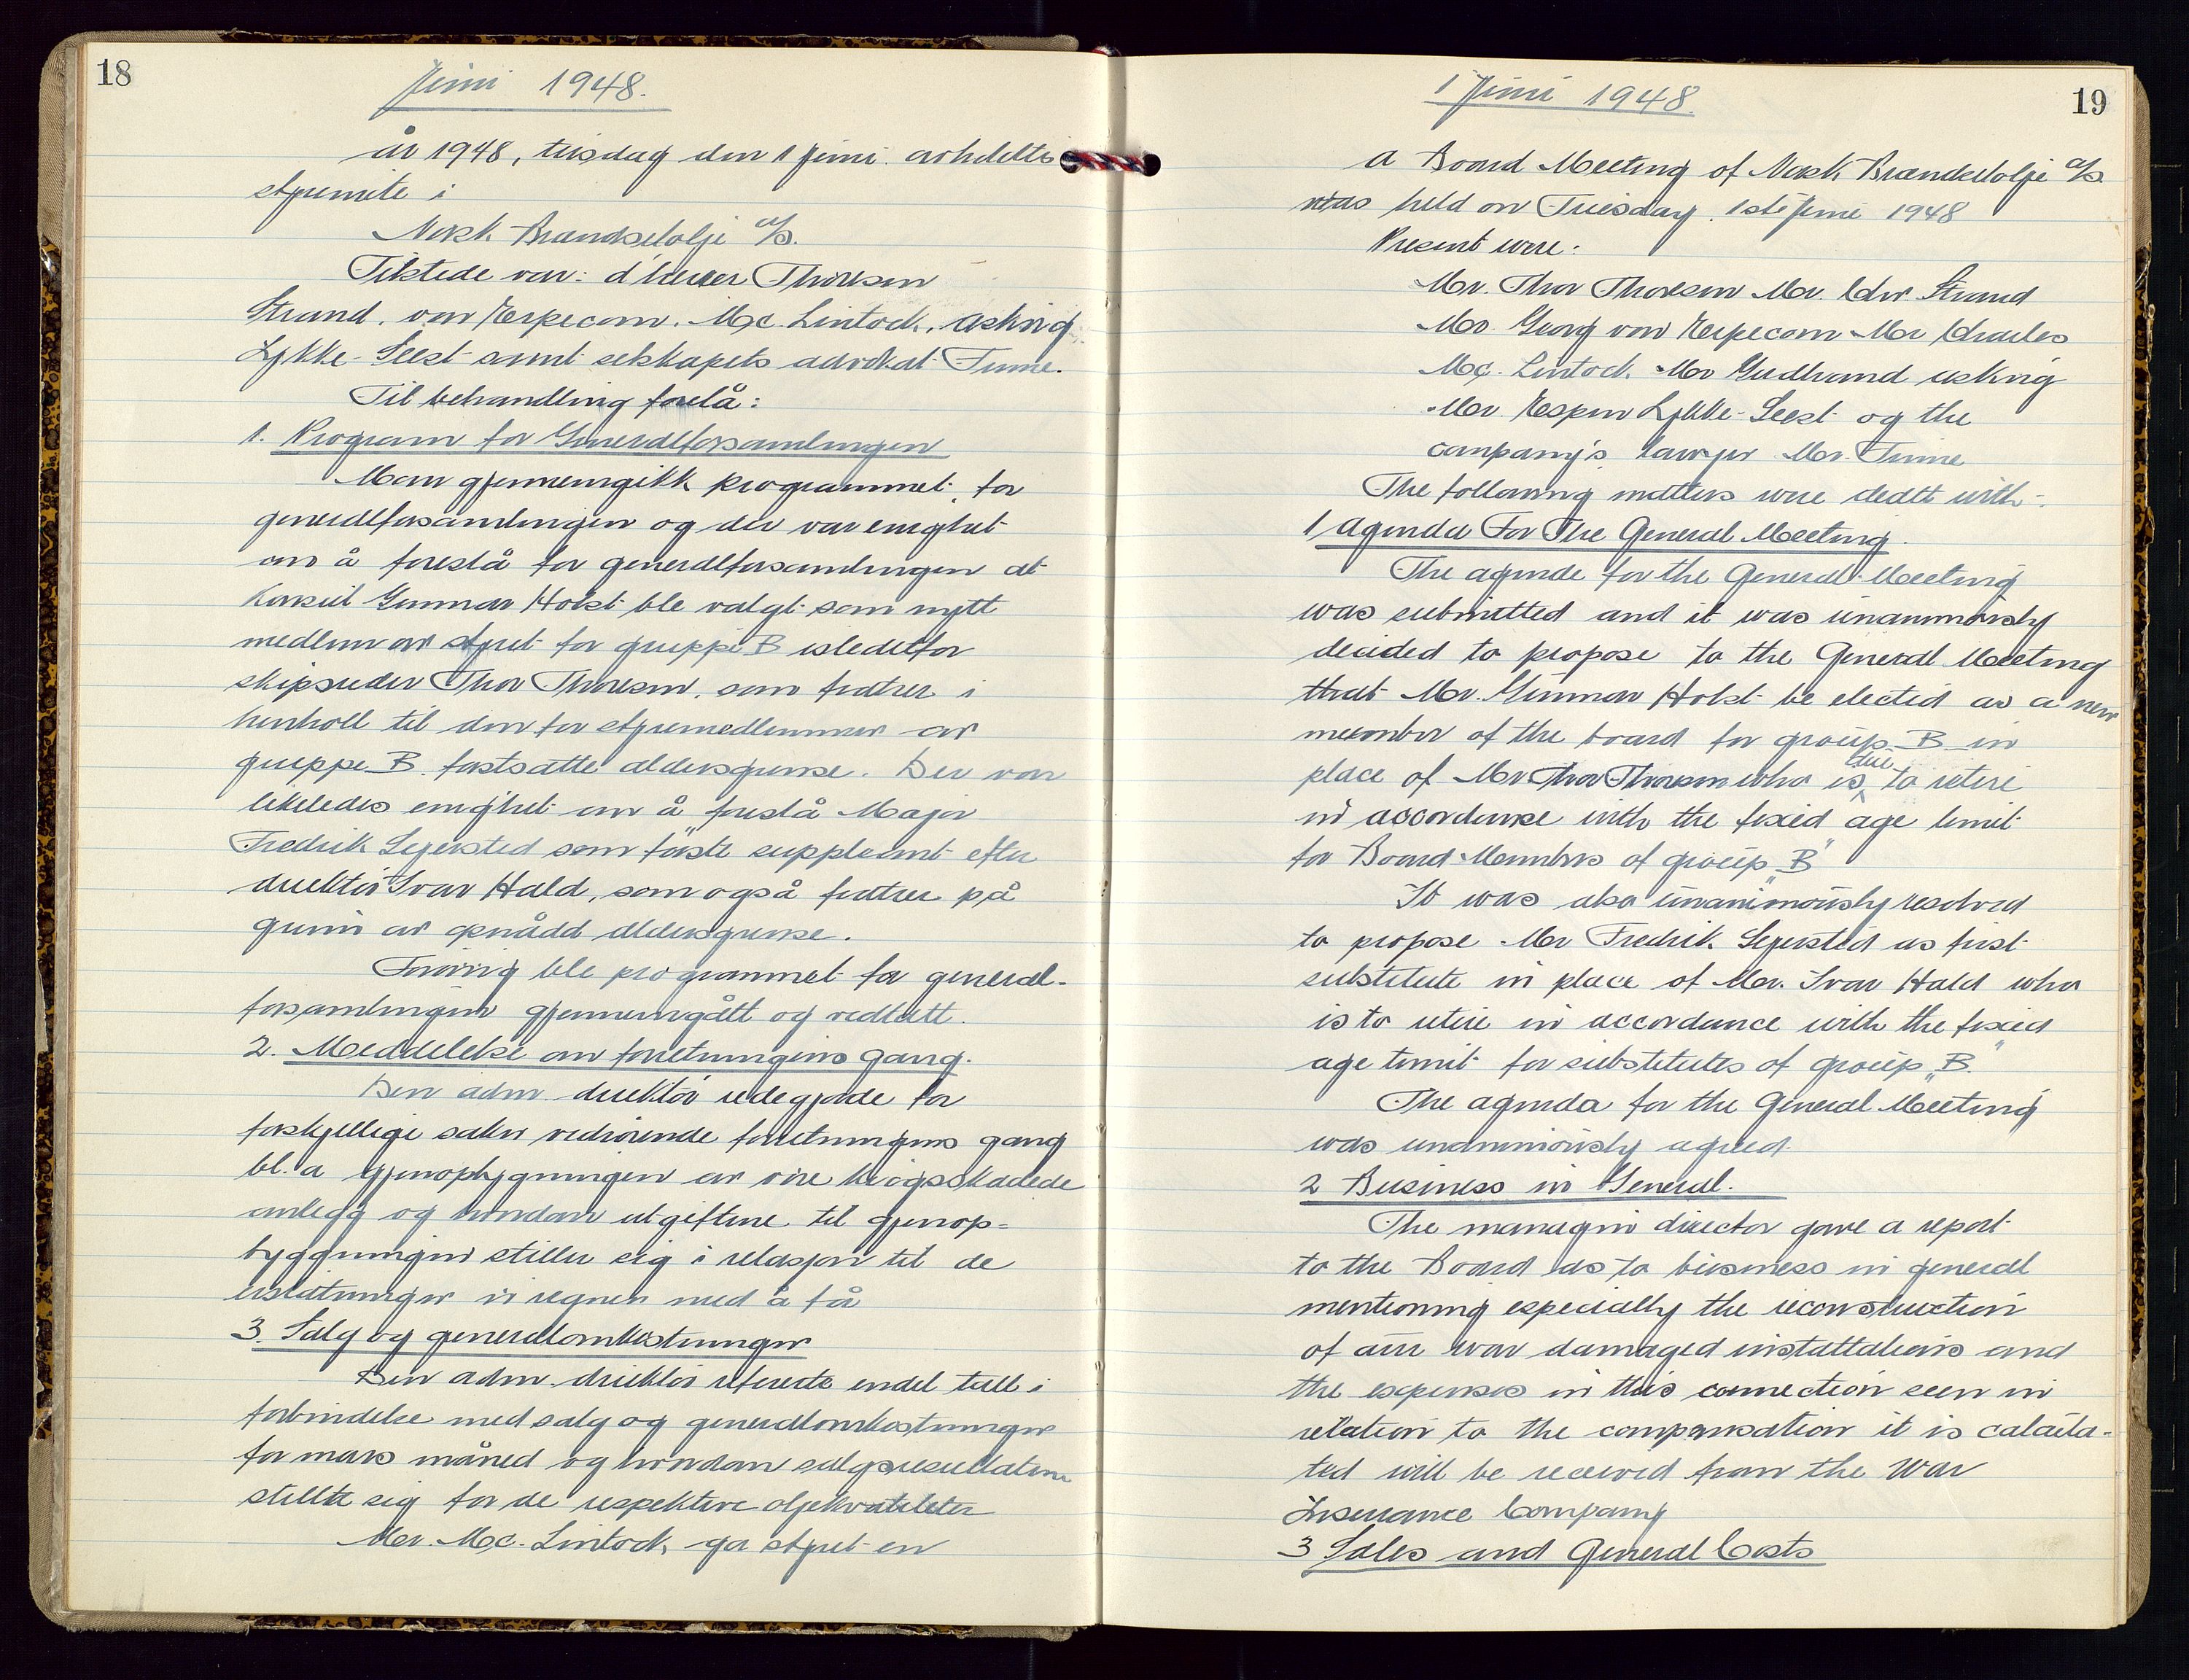 18
Juni 1948.
År 1948, tirsdag den 1 Juni avholdtes
styremöte i
Norsk Brændselolje A/S.
Tilstede var: d'herrer Thoresen
Strand, von Erpecom, Mc. Lintock, Asking
Lykke-Seest samt selskapets advokat Fume.
Til behandling forelå:
1. Program for Generalforsamlingen
Man gjennemgikk programmet for
generalforsamlingen og der var enighet
om å foreslå for generalforsamlingen at
konsul Gunnar Holst ble valgt som nytt
medlem av styret for gruppe B istedetfor
skipsreder Thor Thoresen, som fratrer i
henholl til den for styremedlemmer av
gruppe B. fastsatte aldersgrense. Der var
likeledes enighet om å foreslå Major
Fredrik Sejersted som förste suppleant efter
direktör Ivar Hald, som også fratrer på
grunn av opnådd aldersgrense.
Forövrig ble programmet for general-
forsamlingen gjennemgått og vedtatt.
2. Meddelelse om forretningens gang.
Den adm. direktör redegjorde for
forskjellige saker vedrörende forretningens gang
bl. a gjenopbygningen av våre krigsskadede
anlegg og hvordan utgiftene til gjenop-
byggningen stiller sig i relasjon til de
erstatninger vi regner med å få
3. Salg og generalomkostninger
Den adm. direktör refererte endel tall i
forbindelse med salg og generalomkostninger
for mars måned og hvordan salgsresultatene
stillte sig for de respektive oljekvaliteter
Mr. Mc. Lintock, ga styret en
1 Juni 1948.
19
A Board Meeting of Norsk Brændselolje A/S.
was held on Tuesday, 1st Juni 1948
Present were:
Mr. Thor Thoresen Mr. Chr. Strand
Mr. Georg von Erpecom Mr Charles
Mc. Lintock Mr Gudbrand Asking
Mr. Espen Lykke-Seest og the
company's lawyer Mr. Fume
The following matters were dealt with:
1 Agenda For The General Meeting.
The agende for the General Meeting
was submitted and it was unanimously
decided to propose to the General Meeting
that Mr. Gunnar Holst be elected as a new
meember of the board for group B in
place of Mr Thor Thoresen who is due to retire
in accordance with the fixed age limit
for Board Members of group „B"
It was also unanimously resolved
to propose Mr Fredrik Sejersted as first
substitute in place of Mr. Ivar Hald who
is to retire in accordance with the fixed
age limit for substitutes of group „B."
The agenda for the General Meeting
was unanimously agreed.
2 Business in General.
The managin director gave a report
to the Board as to business in general
mentioning especially the reconstruction
of our war damaged installations and
the expenses in this connection seen in
relation to the compensation it is calcula-
ted will be received from the War
Insurance Company
3 Sales and General Costs